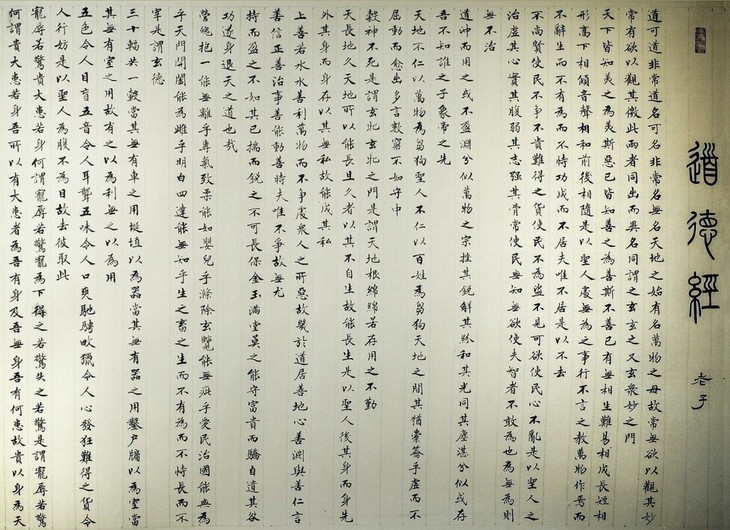 道德經
老子
道可道非常道名可名非常名無名天地之始有名萬物之母故常無欲以觀其妙
常有欲以觀其徼此兩者同出而異名同謂之玄玄之又玄眾妙之門
天下皆知美之為美斯惡已皆知善之為善斯不善已有無相生難易相成長短相
形高下相傾音聲相和前後相隨是以聖人處無為之事行不言之教萬物作焉而
不辭生而不有為而不恃功成而不居夫唯不居是以不去
不尚賢使民不爭不貴難得之貨使民不為盜不見可欲使民心不亂是以聖人之
治虛其心實其腹弱其志強其骨常使民無知無欲使夫智者不敢為也為無為則
無不治
道沖而用之或不盈淵兮似萬物之宗挫其銳解其紛和其光同其塵湛兮似或存
吾不知誰之子象帝之先
天地不仁以萬物為芻狗聖人不仁以百姓為芻狗天地之間其猶橐籥乎虛而不
屈動而愈出多言數窮不如守中
榖神不死是謂玄牝玄牝之門是謂天地根綿綿若存用之不勤
天長地久天地所以能長且久者以其不自生故能長生是以聖人後其身而身先
外其身而身存以其無私故能成其私
上善若水水善利萬物而不爭處眾人之所惡故幾於道居善地心善淵與善仁言
善信正善治事善能動善時夫唯不爭故無尤
持而盈之不如其已揣而銳之不可長保金玉滿堂莫之能守富貴而驕自遺其咎
功遂身退天之道也哉
營魄抱一能無離乎專氣致柔能如嬰兒乎滌除玄覽能無疵乎愛民治國能無為
乎天門開闔能為雌乎明白四達能無知乎生之畜之生而不有為而不恃長而不
宰是謂玄德
三十輻共一轂當其無有車之用埏埴以為器當其無有器之用鑿戶牖以為室當
其無有室之用故有之以為利無之以為用
五色令人目盲五音令人耳聾五味令人口爽馳騁畋獵令人心發狂難得之貨令
人行妨是以聖人為腹不為目故去彼取此
寵辱若驚貴大患若身何謂寵辱若驚寵為下得之若驚失之若驚是謂寵辱若驚
何謂貴大患若身吾所以有大患者為吾有身及吾無身吾有何患故貴以身為天